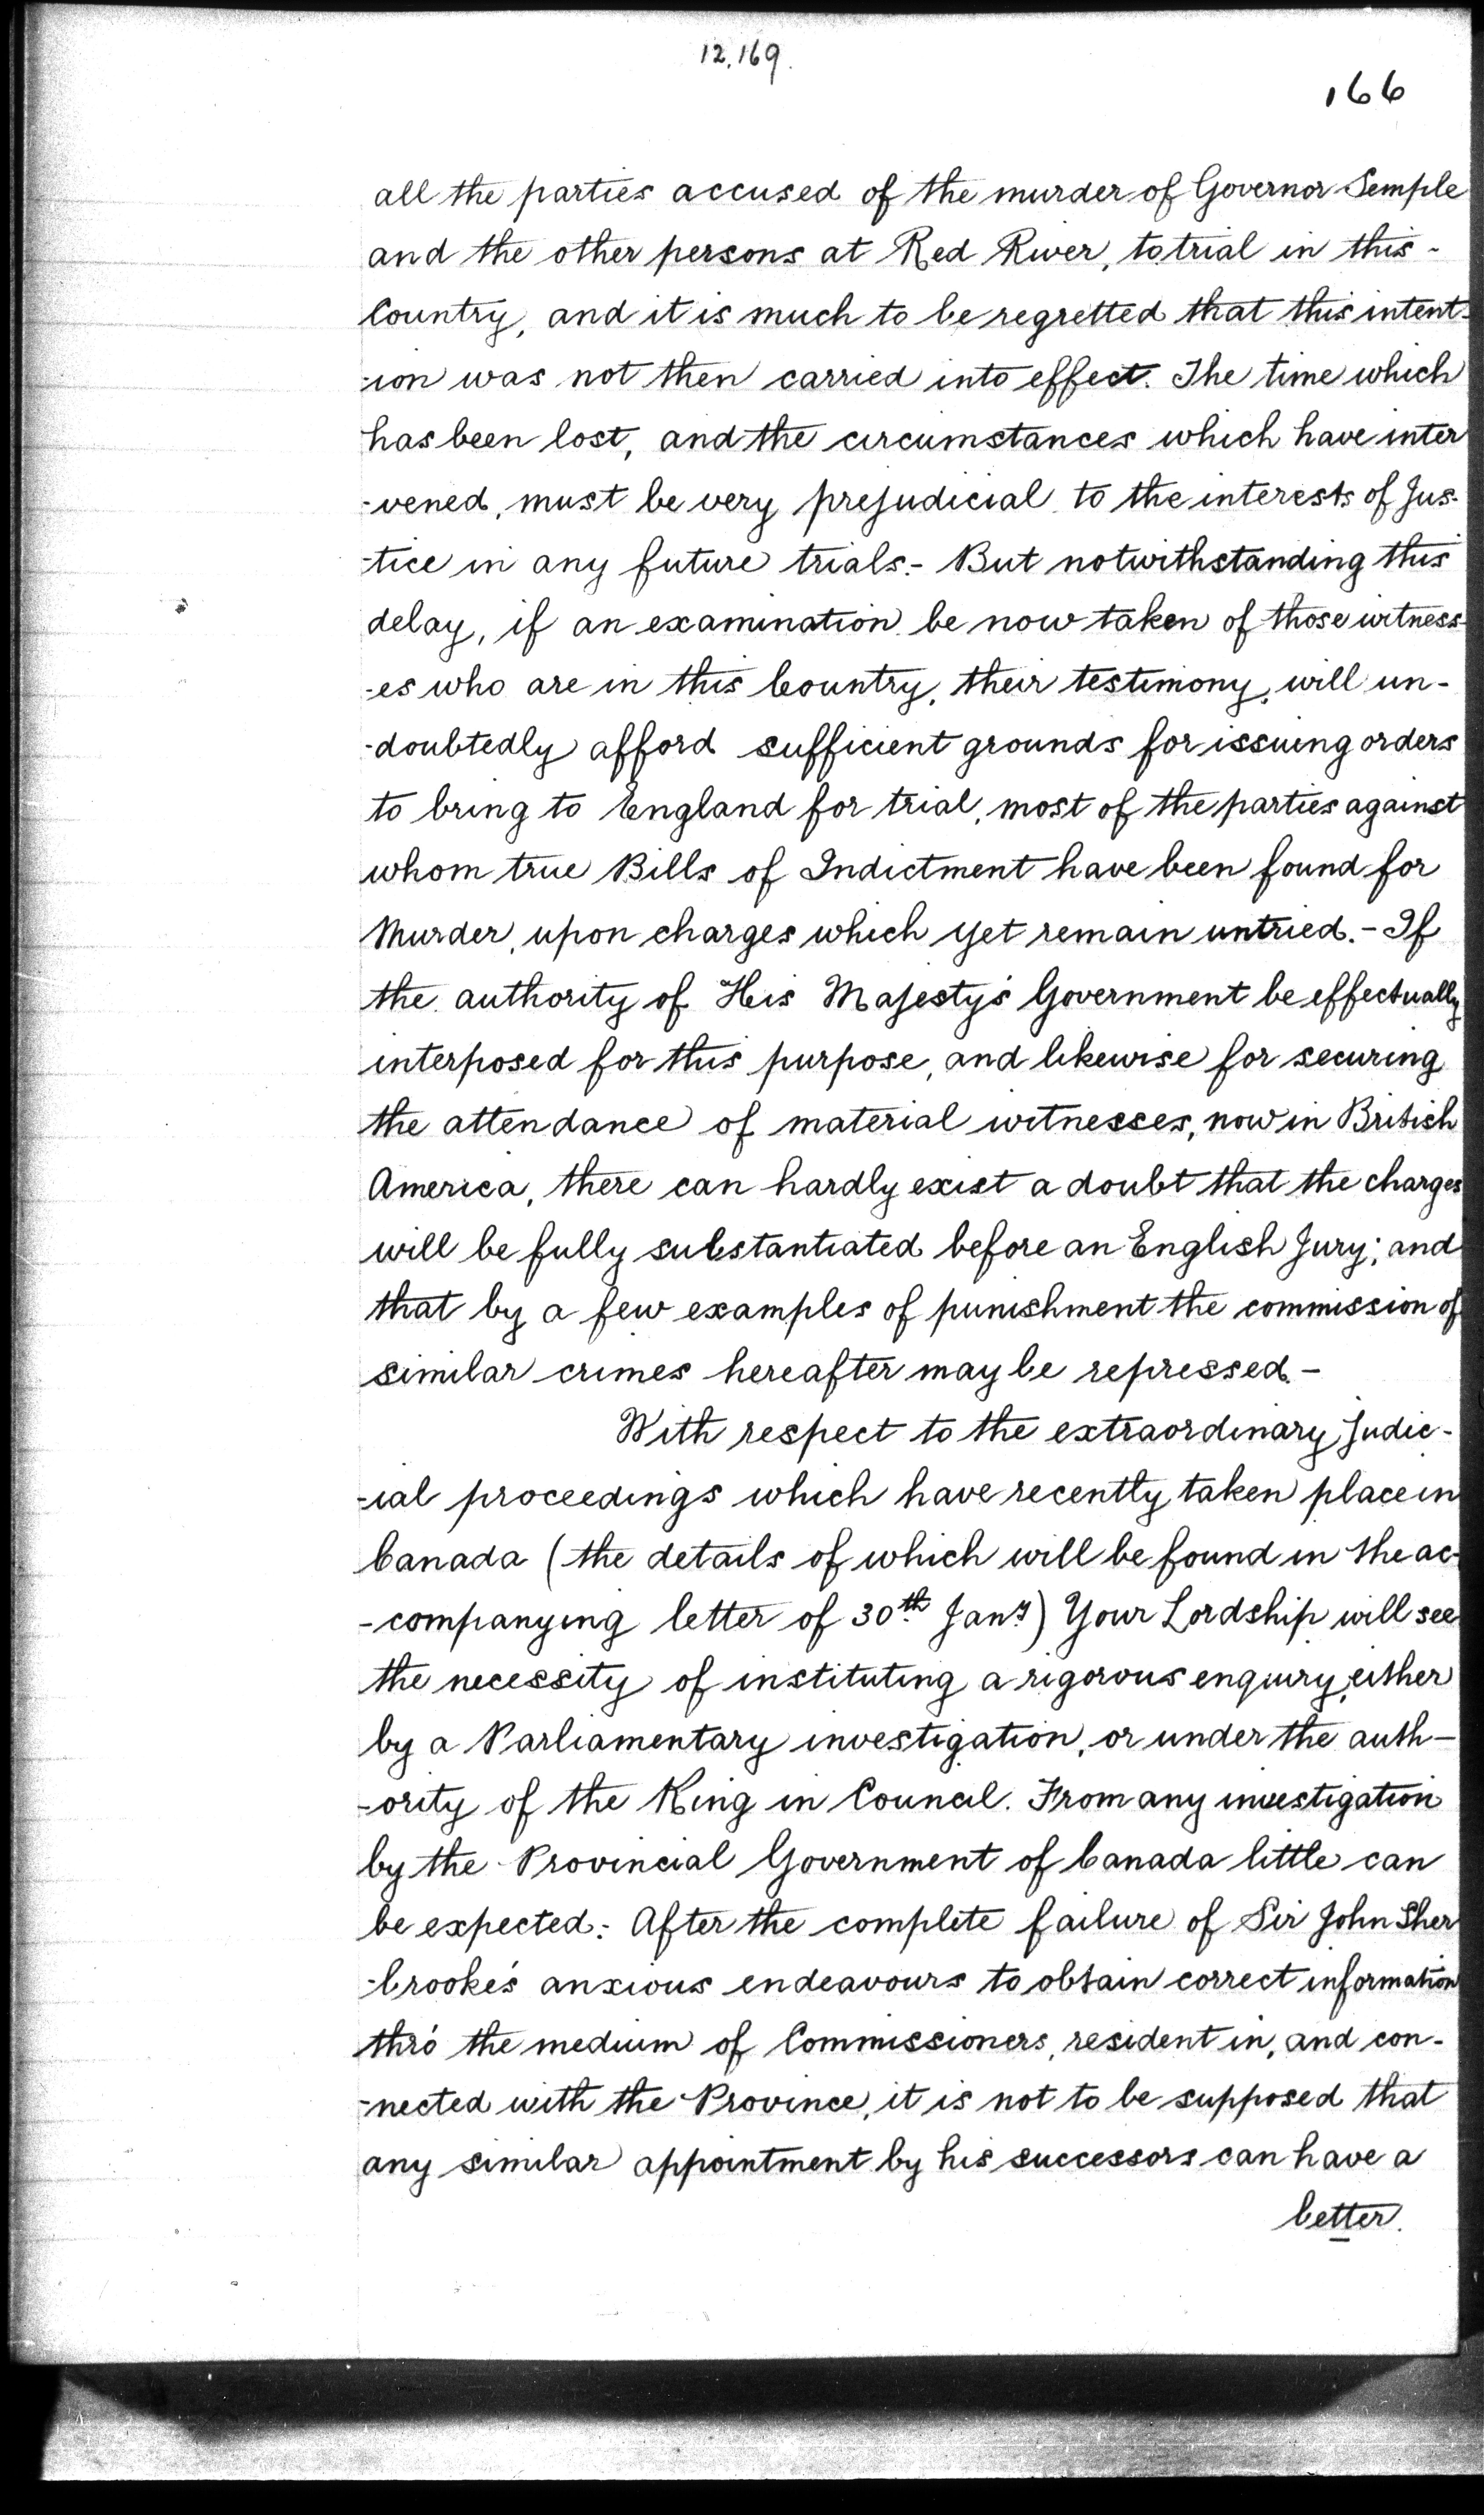 12,169.
166
all the parties accused of the murder of Governor Semple
and the other persons at Red River, to trial in this -
Country, and it is much to be regretted that this intent-
-ion was not then carried into effect. The time which
has been lost, and the circumstances which have inter
-vened, must be very prejudicial to the interests of Jus-
-tice in any future trials.- But notwithstanding this
delay, if an examination be now taken of those witness-
-es who are in this Country, their testimony, will un-
-doubtedly afford sufficient grounds for issuing orders
to bring to England for trial, most of the parties against
whom true Bills of Indictment have been found for
Murder, upon charges which yet remain untried.- If
the authority of His Majesty's Government be effectually
interposed for this purpose, and likewise for securing
the attendance of material witnesses, now in British
America, there can hardly exist a doubt that the charges
will be fully substantiated before an English Jury; and
that by a few examples of punishment the commission of
similar crimes hereafter may be repressed.-
With respect to the extraordinary Judic-
-ial proceedings which have recently taken place in
Canada (the details of which will be found in the ac-
-companying letter of 30th Jany) Your Lordship will see
the necessity of instituting a rigorous enquiry, either
by a Parliamentary investigation, or under the auth-
-ority of the King in Council. From any investigation
by the Provincial Government of Canada little can
be expected:- After the complete failure of Sir John Sher
-brooke's anxious endeavours to obtain correct information
thro' the medium of Commissioners, resident in, and con-
-nected with the Province, it is not to be supposed that
any similar appointment by his successors can have a
better.